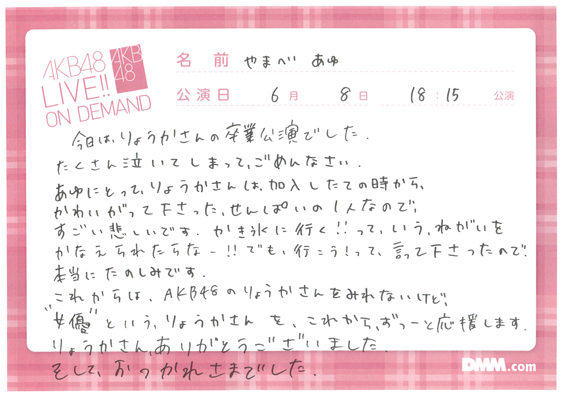 AKB48
LIVE!!
ON DEMAND
AKB
48
名前 やまべ あゆ
公演日 6月 8日 18:15 公演
今日は、りょうかさんの卒業公演でした.
たくさん泣いてしまって、ごめんなさい.
あゆにとって、りょうかさんは、加入したての時から、
かわいがって下さった、せんぱいの1人なので、
すごい悲しいです. かき氷に行く!!って、いう、ねがいを
かなえられたらなー!! でも、行こう!って、言って下さったので.
本当にたのしみです.
これからは、AKB48のりょうかさんをみれないけど、
"女優"という、りょうかさんを、これから、ずっーと応援します.
りょうかさん、ありがとうございました.
そして、おつかれさまでした.
DMM.com